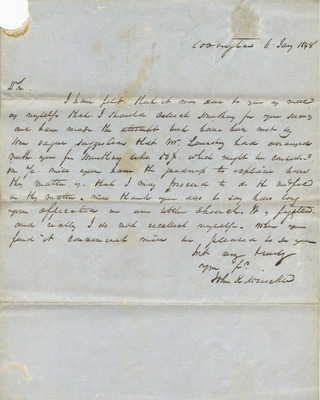 Covington 6 Jany 1848
Dr Sir
I have felt that it was due to you as well
as myself that I should collect something for your services
and have made the attempt but have been met by
some vague suggestions that Mr. had arranged
with you for something like 50$. which might be
Will you have the goodness to explain how
this matter is. that I may proceed to do the
in this matter. Will thank you also to say how long
you officiated in our church. It is
and really I do not recollect myself. When you
find it convenient will be pleased to see you
very truly
John